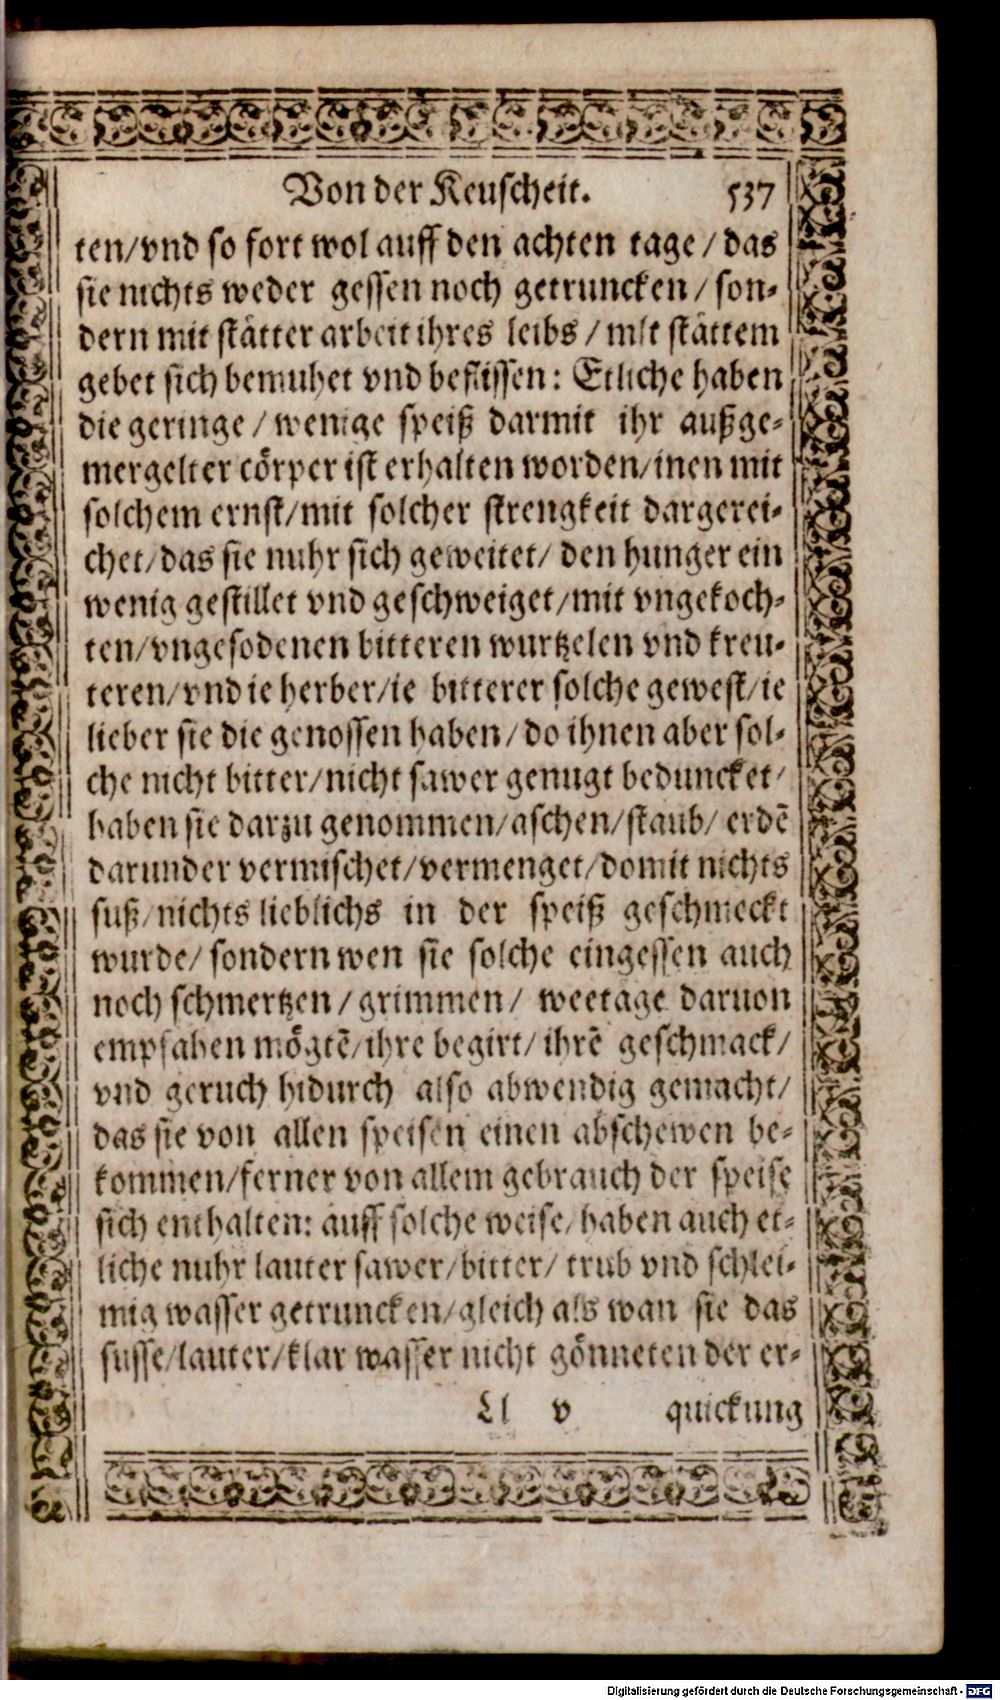 Von der Keuscheit. 537
ten/vnd so fort wol auff den achten tage/das
sie nichts weder gessen noch getruncken/son-
dern mit stätter arbeit ihres leibs/mit stättem
gebet sich bemuhet vnd beflissen: Etliche haben
die geringe/wenige speiß darmit ihr außge-
mergelter cörper ist erhalten worden/inen mit
solchem ernst/mit solcher strengkeit dargerei-
chet/das sie nuhr sich geweitet/den hunger ein
wenig gestillet vnd geschweiget/mit vngekoch-
ten/vngesodenen bitteren wurtzelen vnd kreu-
teren/vnd ie herber/ie bitterer solche gewest/ie
lieber sie die genossen haben/do ihnen aber sol-
che nicht bitter/nicht sawer genugt beduncket/
haben sie darzu genommen/aschen/staub/erdē
darunder vermischet/vermenget/domit nichts
suß/nichts lieblichs in der speiß geschmeckt
wurde/sondern wen sie solche eingessen auch
noch schmertzen/grimmen/weetage daruon
empfahen mögtē/ihre begirt/ihrē geschmack/
vnd geruch hidurch also abwendig gemacht/
das sie von allen speisen einen abschewen be-
kommen/ferner von allem gebrauch der speise
sich enthalten: auff solche weise/haben auch et-
liche nuhr lauter sawer/bitter/trub vnd schlei-
mig wasser getruncken/gleich als wan sie das
susse/lauter/klar wasser nicht gönneten der er-
Ll v quickung
Digitalisierung gefördert durch die Deutsche Forschungsgemeinschaft - DFG